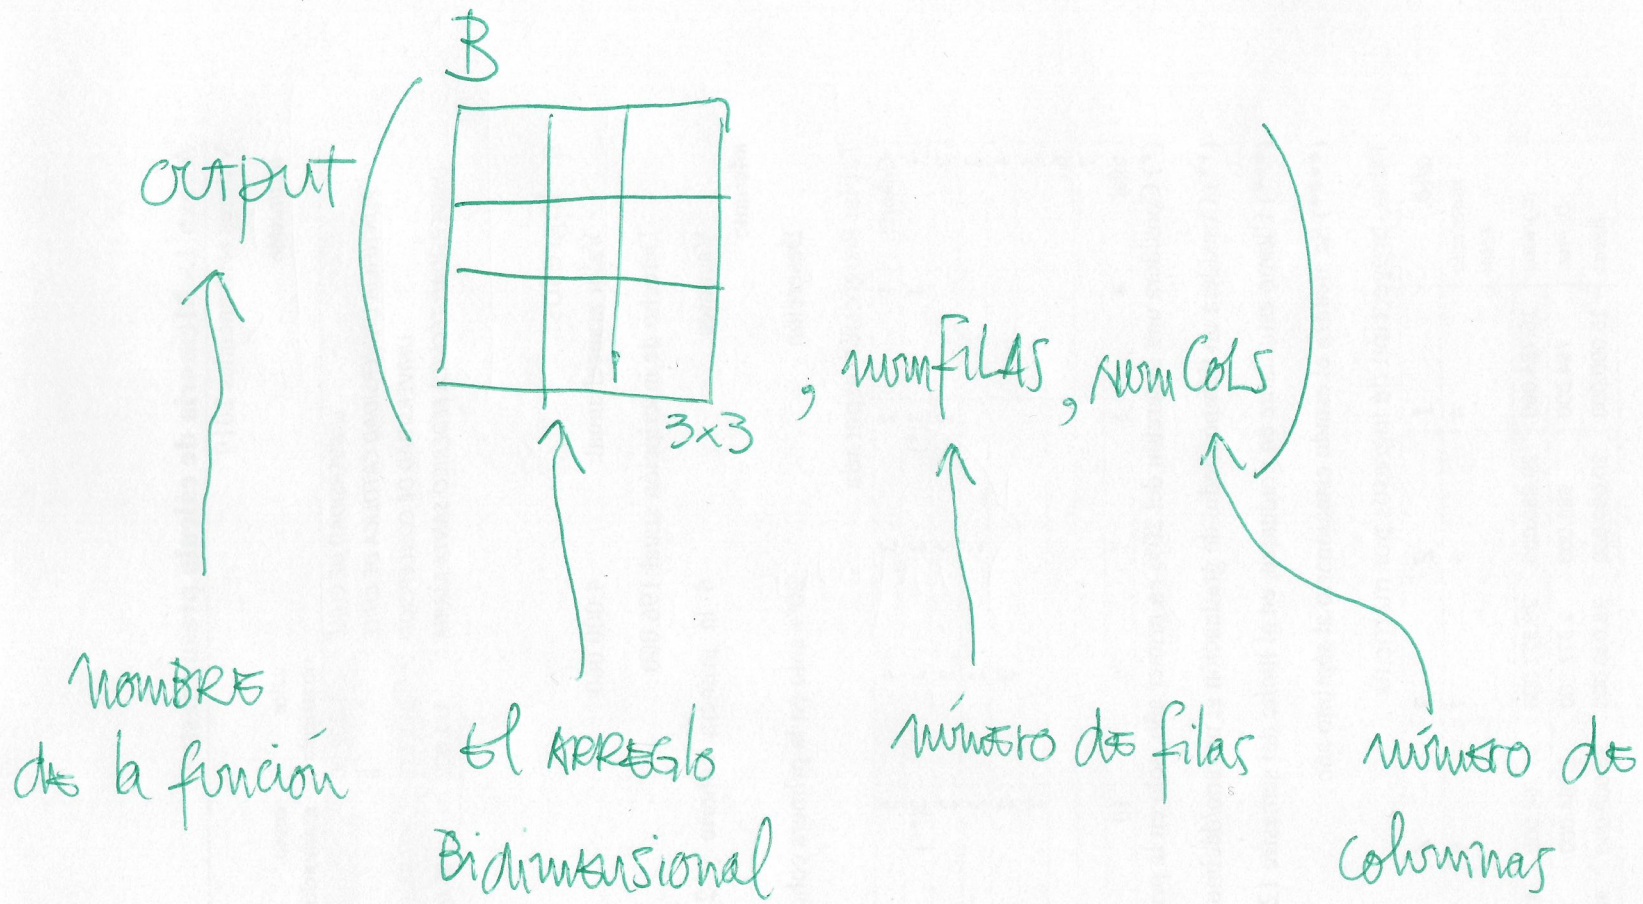 B
output
3x3
, numFILAS, numCols
nomBRE
de la función
El ARREGlo
Bidimensional
número de filas
número de
columnas